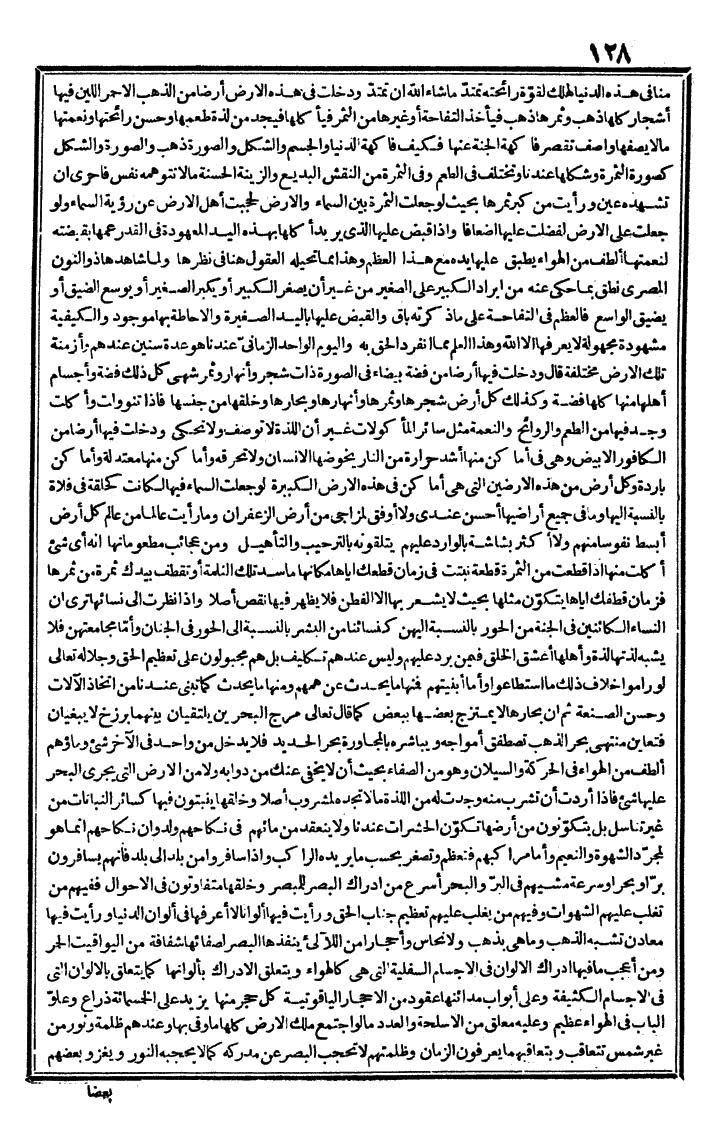 ١٢٨
منافى هذه الدنيا لهلك لقوة رائحته تمتد ما شاء الله ان تمتد ودخلت فى هذه الارض أرضا من الذهب الاحمر اللين فيها
أشجار كلها ذهب وثمرها ذهب فيأخذ التفاحة أو غيرها من الثمر فيأكلها فيجد من لذة طعمها وحسن رائحتها ونعمتها
مالا يصفها واصف تقصر فاكهة الجنة عنها فكيف فاكهة الدنيا والجسم والشكل والصورة ذهب والصورة والشكل
كصورة الثمرة وشكلها عندنا وتختلف فى الطعم وفى الثمرة من النقش البديع والزينة الحسنة مالا تتوهمه نفس فاحرى ان
تشهده عين ورأيت من كبر ثمرها بحيث لو جعلت الثمرة بين السماء والارض لحجبت أهل الارض عن رؤية السماء ولو
جعلت على الارض لفضلت عليها اضعافا واذا قبض عليها الذى يريد أكلها بهذه اليد المعهودة فى القدر عمها بقبضته
لنعمتها ألطف من الهواء يطبق عليها يده مع هذا العظم وهذا مما تحيله العقول هنا فى نظرها ولما شاهدها ذو النون
المصرى نطق بما حكى عنه من ايراد الكبير على الصغير من غير أن يصغر الكبير أو يكبر الصغير أو يوسع الضيق أو
يضيق الواسع فالعظم فى التفاحة على ما ذكرته باق والقبض عليها باليد الصغيرة والاحاطة بها موجود والكيفية
مشهودة مجهولة لا يعرفها الا الله وهذا العلم مما انفرد الحق به واليوم الواحد الزمانى عندنا هو عدة سنين عندهم وأزمنة
تلك الارض مختلفة قال ودخلت فيها أرضا من فضة بيضاء فى الصورة ذات شجر وأنهار وثمر شهى كل ذلك فضة وأجسام
أهلها منها كلها فضة وكذلك كل أرض شجرها وثمرها وأنهارها وبحارها وخلقها من جنسها فاذا تنوولت وأكلت
وجد فيها من الطعم والروائح والنعمة مثل سائر المأكولات غير أن اللذة لا توصف ولا تحكى ودخلت فيها أرضا من
الكافور الابيض وهى فى أماكن منها أشد حرارة من النار يخوضها الانسان ولا تحرقه وأماكن منها معتدلة وأماكن
باردة وكل أرض من هذه الارضين التى هى أماكن فى هذه الارض الكبيرة لو جعلت السماء فيها لكانت كحلقة فى فلاة
بالنسبة اليها وما فى جميع أراضيها أحسن عندى ولا أوفق لمزاجى من أرض الزعفران وما رأيت عالما من عالم كل أرض
أبسط نفوسا منهم ولا أكثر بشاشة بالوارد عليهم يتلقونه بالترحيب والتأهيل ومن عجائب مطعوماتها انه أى شئ
أكلت منها اذا قطعت من الثمرة قطعة نبتت فى زمان قطعك اياها مكانها ما سد تلك الثلمة أو تقطف بيدك ثمرة من ثمرها
فزمان قطفك اياها يتكون مثلها بحيث لا يشعر بها الا الفطن فلا يظهر فيها نقص أصلا واذا نظرت الى نسائها ترى ان
النساء الكائنين فى الجنة من الحور بالنسبة اليهن كنسائنا من البشر بالنسبة الى الحور فى الجنان وأما مجامعتهن فلا
يشبه لذتها لذة وأهلها أعشق الخلق فيمن يرد عليهم وليس عندهم تكليف بل هم مجبولون على تعظيم الحق وجلاله تعالى
لو راموا خلاف ذلك ما استطاعوا وأما أبنيتهم فنها ما يحدث عن هممهم ومنها ما يحدث كما تبنى عندنا من اتخاذ الآلات
وحسن الصنعة ثم ان بحارها لا يمتزج بعضها ببعض كما قال تعالى مرج البحرين يلتقيان بينهما برزخ لا يبغيان
فتعاين منتهى بحر الذهب تصطفق أمواجه ويباشره بالمجاورة بحر الحديد فلا يدخل من واحد فى الآخر شئ وماؤهم
ألطف من الهواء فى الحركة والسيلان وهو من الصفاء بحيث أن لا يخفى عنك من دوابه ولا من الارض التى يجرى البحر
عليها شئ فاذا أردت أن تشرب منه وجدت له من اللذة مالا تجده لمشروب أصلا وخلقها ينبتون فيها كسائر النباتات من
غير تناسل بل يتكوّنون من أرضها تكوّن الحشرات عندنا ولا ينعقد من مائهم فى نكاحهم ولد وان نكاحهم انما هو
لمجرّد الشهوة والنعيم وأما مراكبهم فتعظم وتصغر بحسب ما يريده الراكب واذا سافروا من بلد الى بلد فانهم يسافرون
برّا وبحرا وسرعة مشيهم فى البرّ والبحر أسرع من ادراك البصر للمبصر وخلقها متفاوتون فى الاحوال ففيهم من
تغلب عليهم الشهوات وفيهم من يغلب عليهم تعظيم جناب الحق ورأيت فيها ألوانا لا أعرفها فى ألوان الدنيا ورأيت فيها
معادن تشبه الذهب وما هى بذهب ولا نحاس وأحجارا من اللآلئ ينفذها البصر لصفائها شفافة من اليواقيت الحمر
ومن أعجب ما فيها ادراك الالوان فى الاجسام السفلية التى هى كالهواء ويتعلق الادراك بألوانها كما يتعلق بالالوان التى
فى الاجسام الكثيفة وعلى أبواب مدائنها عقود من الاحجار الياقوتية كل حجر منها يزيد على الخمسمائة ذراع وعلوّ
الباب فى الهواء عظيم وعليه معلق من الاسلحة والعدد مالو اجتمع ملك الارض كلها ما وفى بها وعندهم ظلمة ونور من
غير شمس تتعاقب وبتعاقبهما يعرفون الزمان وظلمتهم لا تحجب البصر عن مدركه كما لا يحجبه النور ويغزو بعضهم
بعضا